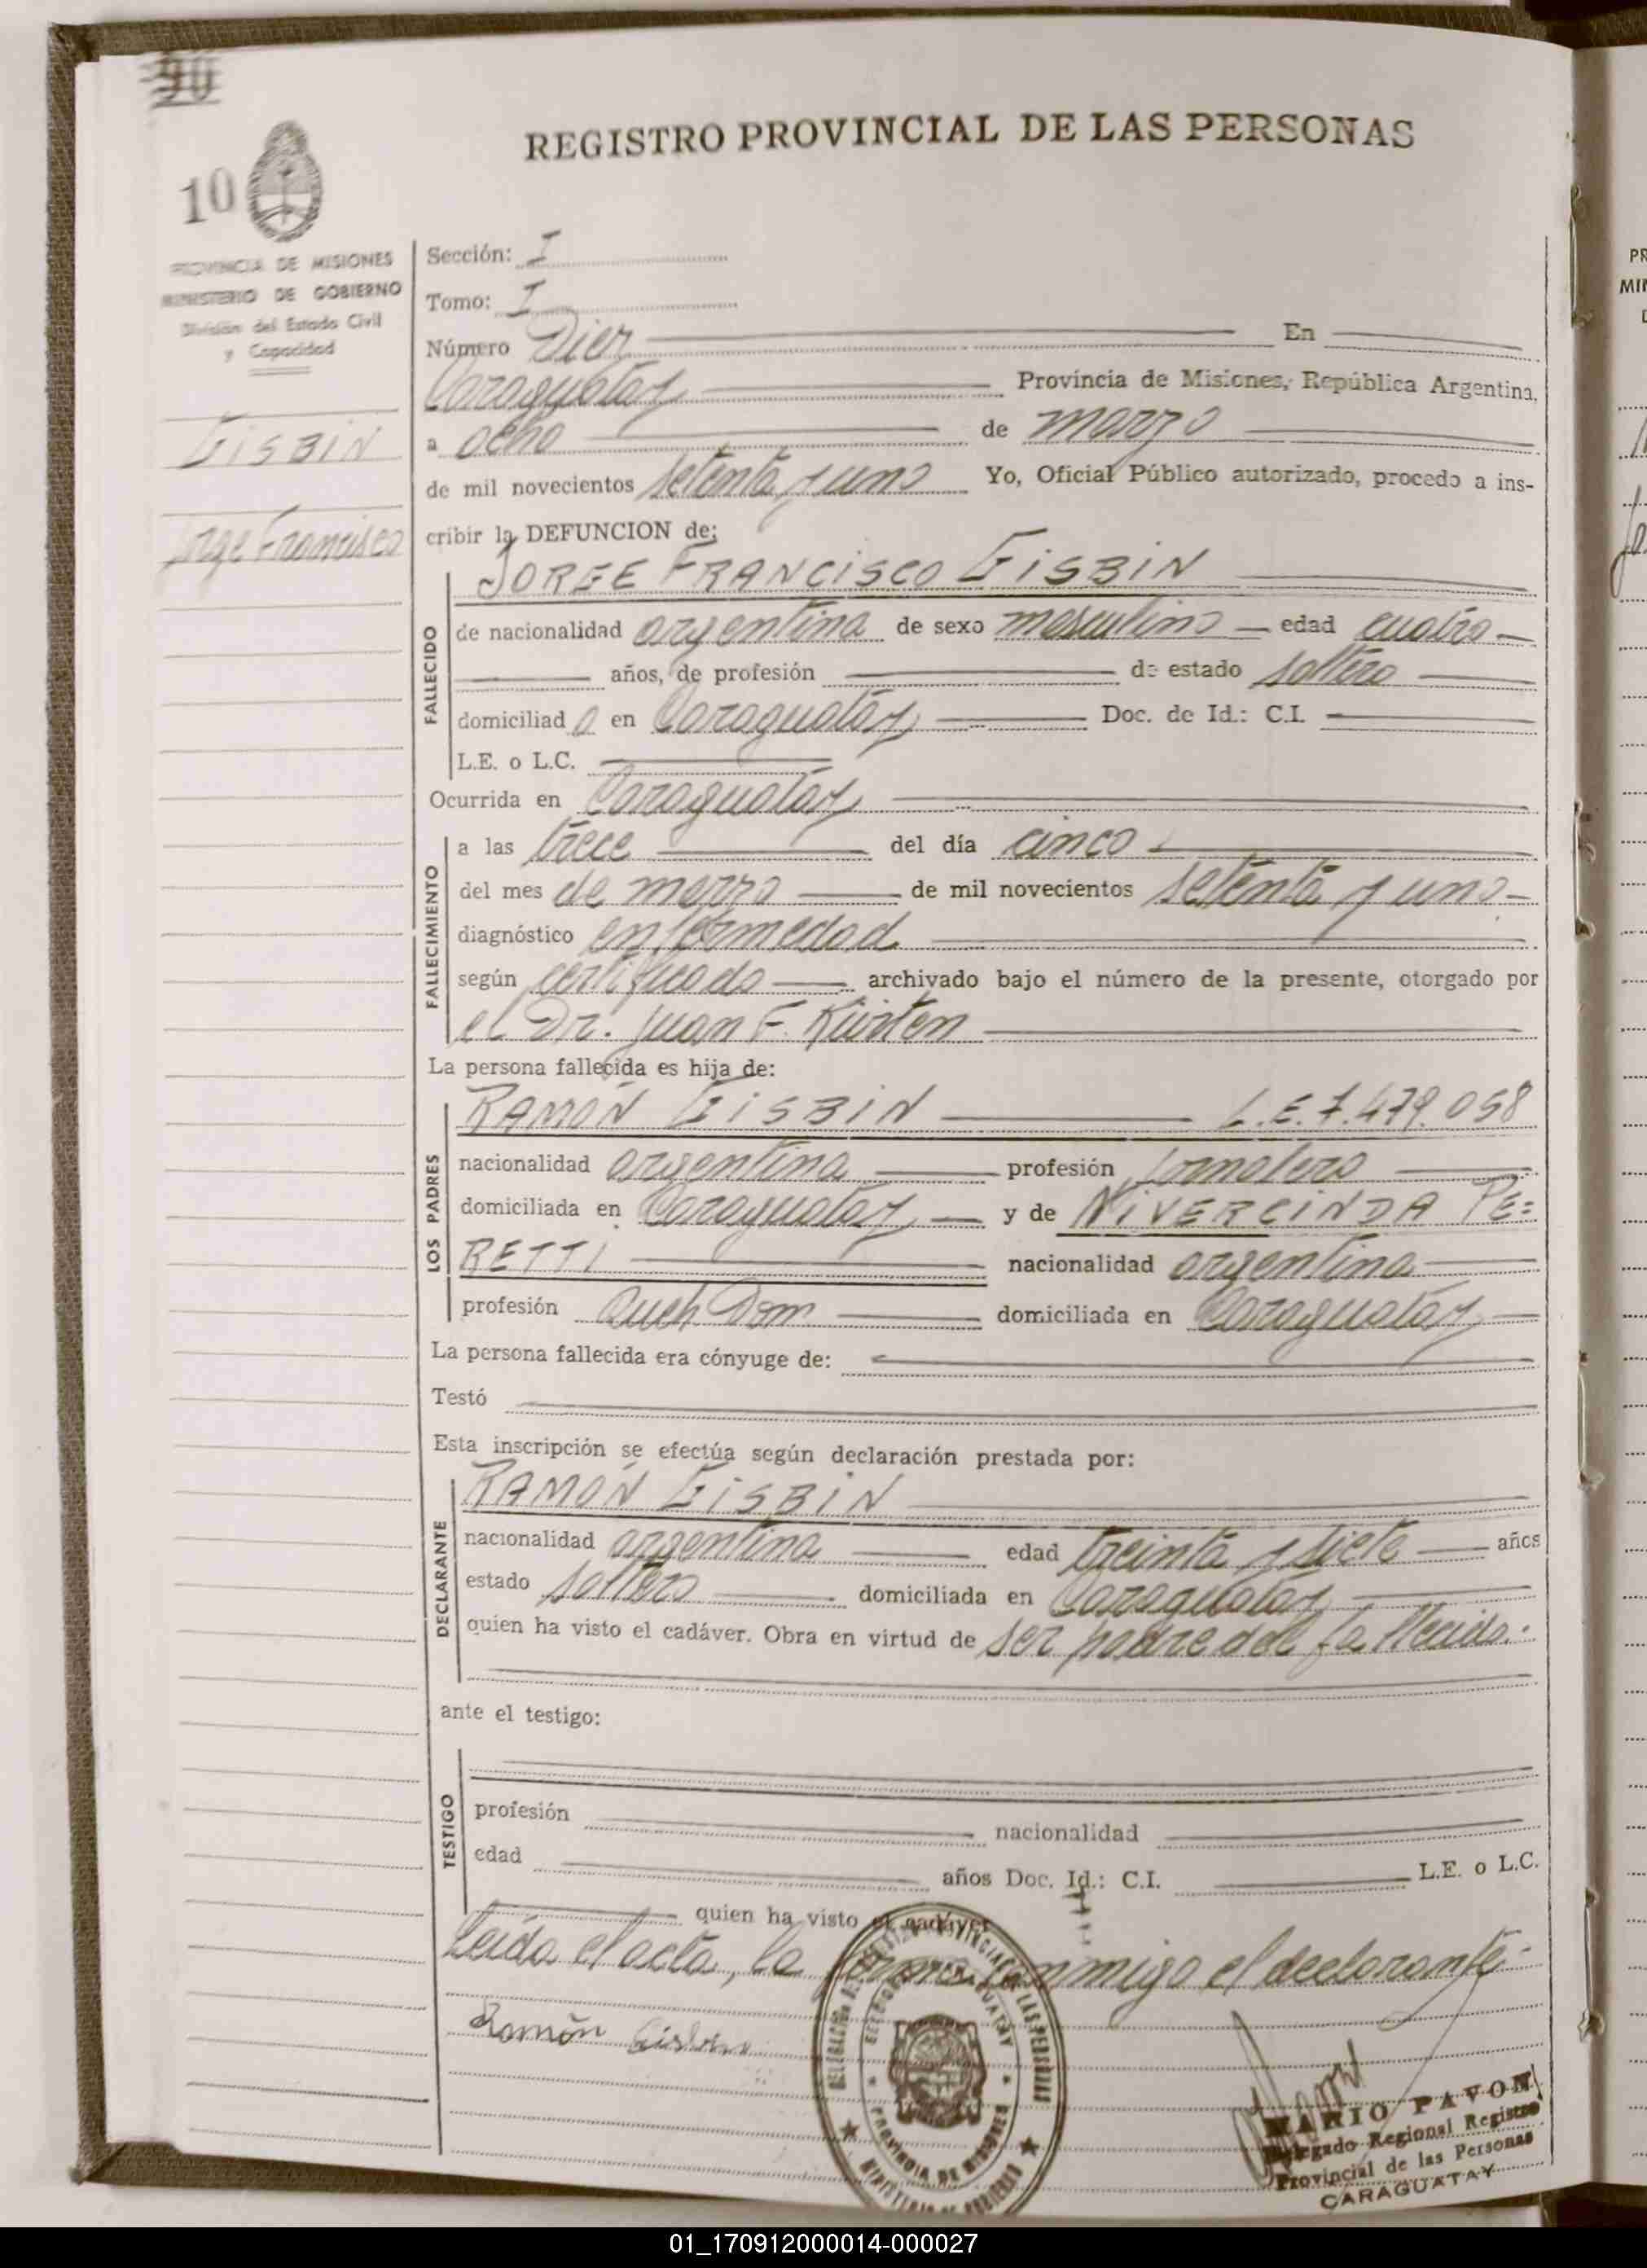 90
10
REGISTRO PROVINCIAL DE LAS PERSONAS
PROVINCIA DE MISIONES
MINISTERIO DE GOBIERNO
División del Estado Civil
y Capacidad
GISBIN
Jorge Francisco
Sección: I
Tomo: I
Número Diez En
Caraguatay Provincia de Misiones, República Argentina,
a ocho de marzo
de mil novecientos setenta y uno Yo, Oficial Público autorizado, procedo a ins-
cribir la DEFUNCION de:
FALLECIDO
JORGE FRANCISCO GISBIN
de nacionalidad argentina de sexo masculino edad cuatro
años, de profesión de estado soltero
domiciliad o en Caraguatay Doc. de Id.: C.I.
L.E. o L.C.
Ocurrida en Caraguatay
FALLECIMIENTO
a las trece del día cinco
del mes de marzo de mil novecientos setenta y uno
diagnóstico enfermedad
según certificado archivado bajo el número de la presente, otorgado por
el Dr. Juan F. Kürten
La persona fallecida es hija de:
LOS PADRES
RAMÓN GISBIN L.E. 7.479.058
nacionalidad argentina profesión jornalero
domiciliada en Caraguatay y de NIVERCINDA PE=
RETTI nacionalidad argentina
profesión Queh Dom domiciliada en Caraguatay
La persona fallecida era cónyuge de:
Testó
Esta inscripción se efectúa según declaración prestada por:
DECLARANTE
RAMÓN GISBIN
nacionalidad argentina edad treinta y siete años
estado soltero domiciliada en Caraguatay
quien ha visto el cadáver. Obra en virtud de ser padre del fallecido.
ante el testigo:
TESTIGO
profesión nacionalidad
edad años Doc. Id.: C.I. L.E. o L.C.
quien ha visto el cadáver
Leída el acta, la firma conmigo el declarante
Ramón Gisbin
PROVINCIA DE MISIONES
MINISTERIO DE GOBIERNO
MARIO PAVON
Delegado Regional Registro
Provincial de las Personas
CARAGUATAY
01_170912000014-000027